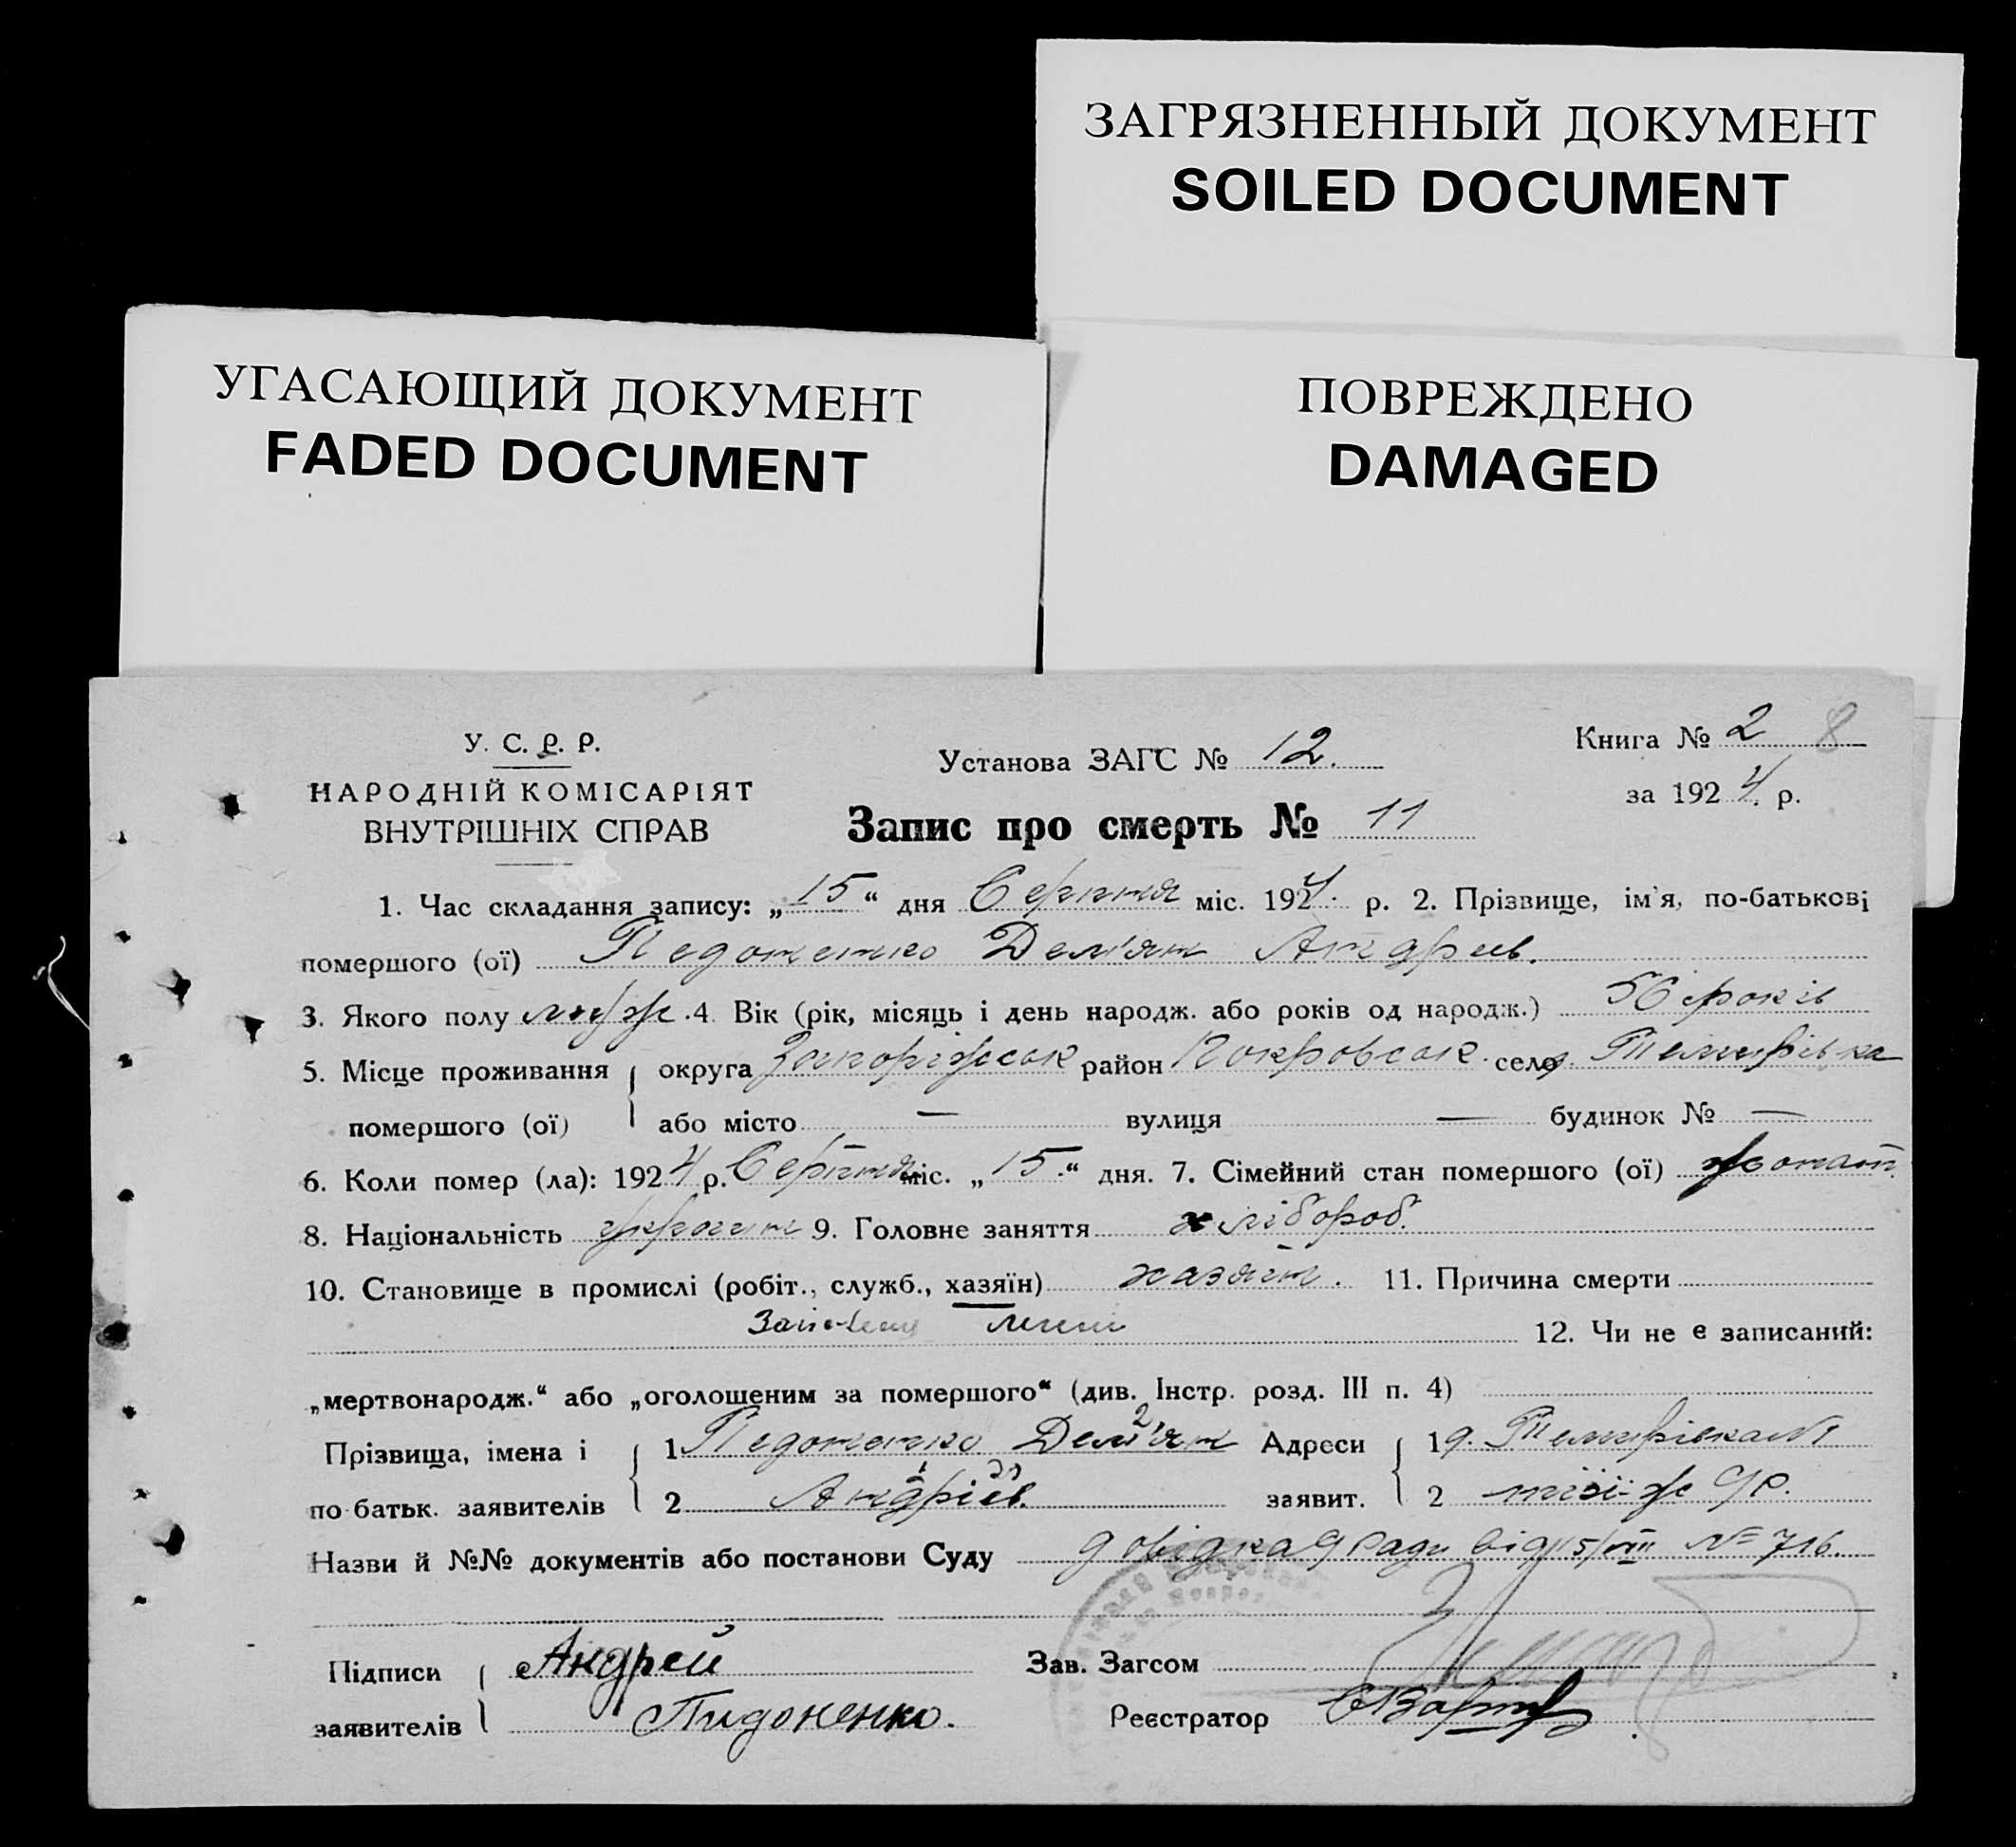 ЗАГРЯЗНЕННЫЙ ДОКУМЕНТ
SOILED DOCUMENT
УГАСАЮЩИЙ ДОКУМЕНТ
FADED DOCUMENT
ПОВРЕЖДЕНО
DAMAGED
У. С. Р. Р.
НАРОДНІЙ КОМІСАРІЯТ
ВНУТРІШНІХ СПРАВ
Установа ЗАГС № 12.
Запис про смерть № 11
Книга № 2 8
за 1924 р.
1. Час складання запису: „15“ дня Серпня міс. 1924. р. 2. Прізвище, ім'я, по-батькові
помершого (ої) Педоненко Дем'ян Андріев.
3. Якого полу муж. 4. Вік (рік, місяць і день народж. або років од народж.) 56 років
5. Місце проживання округа Запоріжськ район Покровськ. село Темирівка
помершого (ої) або місто — вулиця — будинок № —
6. Коли помер (ла): 1924 р. Серпня міс. „15“ дня. 7. Сімейний стан помершого (ої) жонат
8. Національність 9. Головне заняття хлібороб.
10. Становище в промислі (робіт., служб., хазяїн) хазяїн. 11. Причина смерти
12. Чи не є записаний:
„мертвонародж.“ або „оголошеним за помершого“ (див. Інстр. розд. III п. 4)
Прізвища, імена і 1 Педоненко Дем'ян 2 Адреси 1 д. Темирівка №1
по батьк. заявителів 2 Андріев. заявит. 2 тієї-ж
Назви й №№ документів або постанови Суду довідка Ради від 15/VIII № 716.
Підписи Андрей Зав. Загсом
заявителів Пидоненко. Реєстратор